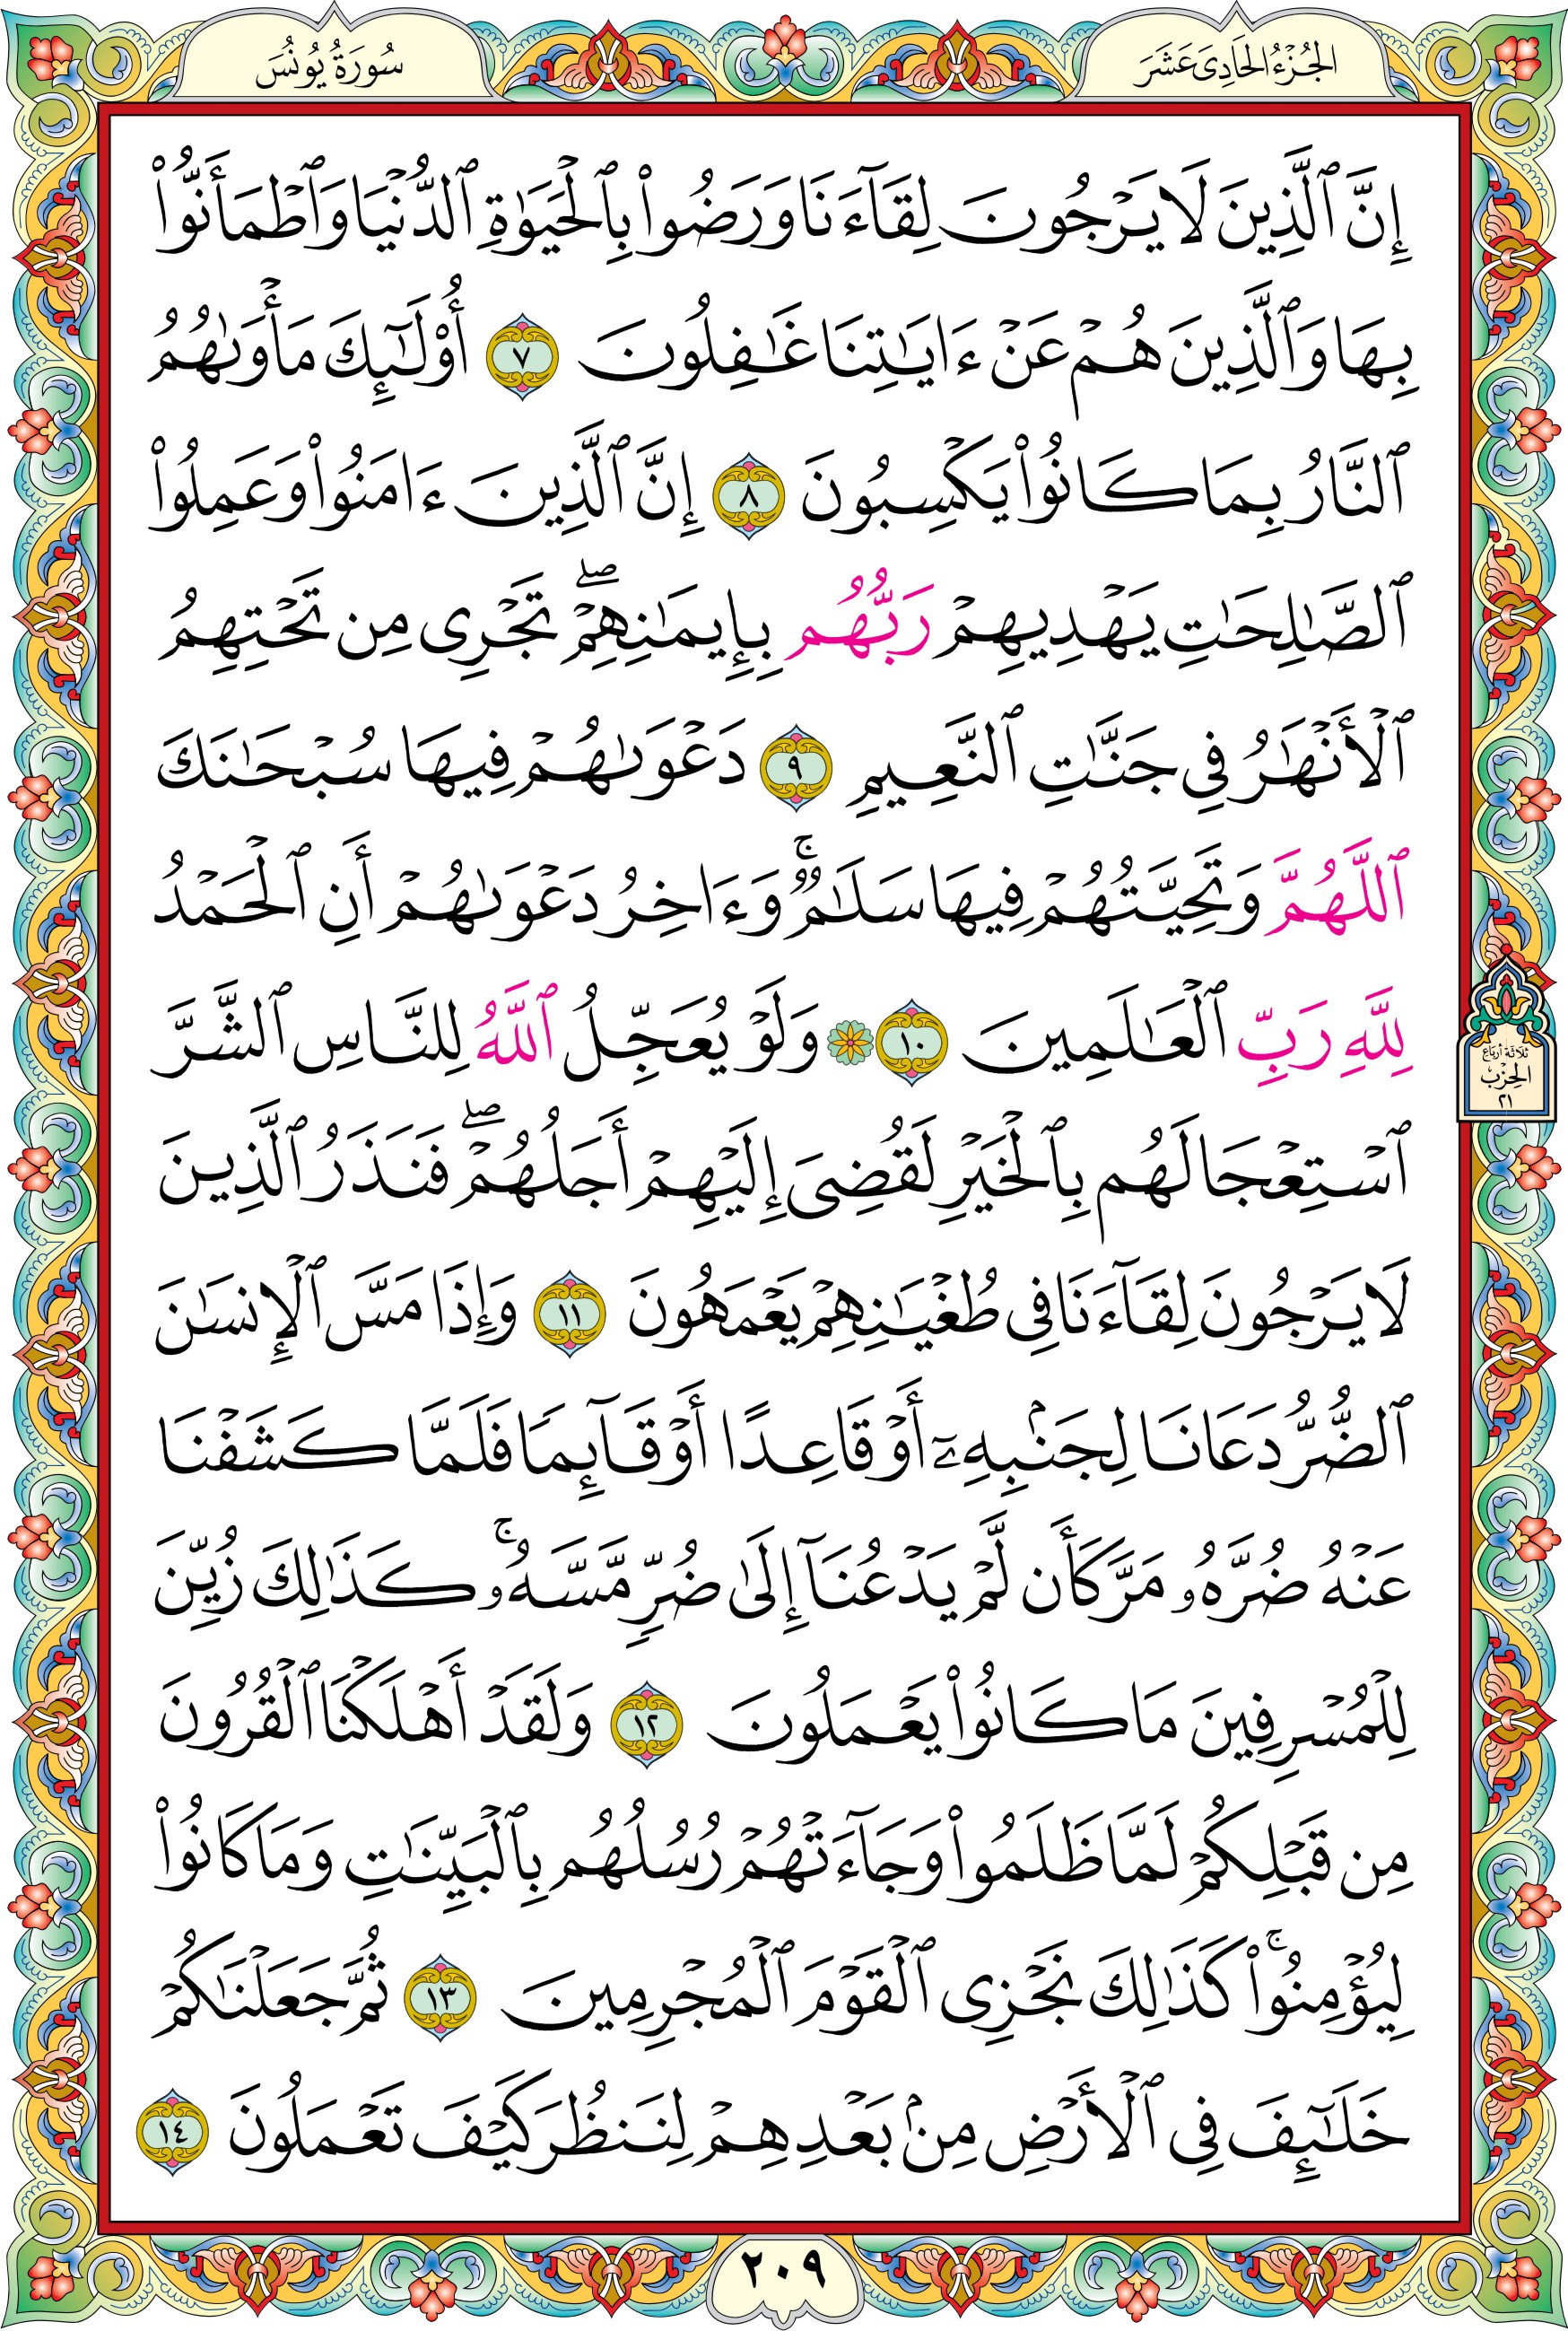 الجُزْءُ الحَادِى عَشَرَ
سُورَةُ يُونُسَ
إِنَّ ٱلَّذِينَ لَا يَرْجُونَ لِقَآءَنَا وَرَضُوا۟ بِٱلْحَيَوٰةِ ٱلدُّنْيَا وَٱطْمَأَنُّوا۟
بِهَا وَٱلَّذِينَ هُمْ عَنْ ءَايَـٰتِنَا غَـٰفِلُونَ ٧ أُو۟لَـٰٓئِكَ مَأْوَىٰهُمُ
ٱلنَّارُ بِمَا كَانُوا۟ يَكْسِبُونَ ٨ إِنَّ ٱلَّذِينَ ءَامَنُوا۟ وَعَمِلُوا۟
ٱلصَّـٰلِحَـٰتِ يَهْدِيهِمْ رَبُّهُم بِإِيمَـٰنِهِمْ ۖ تَجْرِى مِن تَحْتِهِمُ
ٱلْأَنْهَـٰرُ فِى جَنَّـٰتِ ٱلنَّعِيمِ ٩ دَعْوَىٰهُمْ فِيهَا سُبْحَـٰنَكَ
ٱللَّهُمَّ وَتَحِيَّتُهُمْ فِيهَا سَلَـٰمٌ ۚ وَءَاخِرُ دَعْوَىٰهُمْ أَنِ ٱلْحَمْدُ
لِلَّهِ رَبِّ ٱلْعَـٰلَمِينَ ١٠ ۞ وَلَوْ يُعَجِّلُ ٱللَّهُ لِلنَّاسِ ٱلشَّرَّ
ٱسْتِعْجَالَهُم بِٱلْخَيْرِ لَقُضِىَ إِلَيْهِمْ أَجَلُهُمْ ۖ فَنَذَرُ ٱلَّذِينَ
لَا يَرْجُونَ لِقَآءَنَا فِى طُغْيَـٰنِهِمْ يَعْمَهُونَ ١١ وَإِذَا مَسَّ ٱلْإِنسَـٰنَ
ٱلضُّرُّ دَعَانَا لِجَنۢبِهِۦٓ أَوْ قَاعِدًا أَوْ قَآئِمًا فَلَمَّا كَشَفْنَا
عَنْهُ ضُرَّهُۥ مَرَّ كَأَن لَّمْ يَدْعُنَآ إِلَىٰ ضُرٍّ مَّسَّهُۥ ۚ كَذَٰلِكَ زُيِّنَ
لِلْمُسْرِفِينَ مَا كَانُوا۟ يَعْمَلُونَ ١٢ وَلَقَدْ أَهْلَكْنَا ٱلْقُرُونَ
مِن قَبْلِكُمْ لَمَّا ظَلَمُوا۟ وَجَآءَتْهُمْ رُسُلُهُم بِٱلْبَيِّنَـٰتِ وَمَا كَانُوا۟
لِيُؤْمِنُوا۟ ۚ كَذَٰلِكَ نَجْزِى ٱلْقَوْمَ ٱلْمُجْرِمِينَ ١٣ ثُمَّ جَعَلْنَـٰكُمْ
خَلَـٰٓئِفَ فِى ٱلْأَرْضِ مِنۢ بَعْدِهِمْ لِنَنظُرَ كَيْفَ تَعْمَلُونَ ١٤
ثلاثة أرباع
الحزب
٢١
٢٠٩